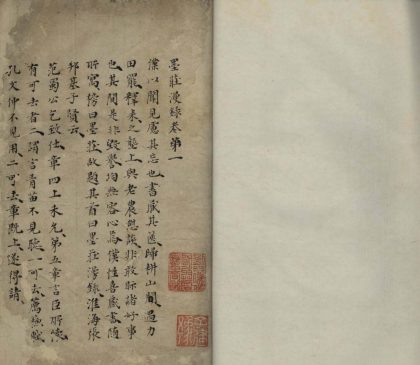 墨莊漫錄卷第一
僕以聞見慮其忘也書藏其篋歸耕山間遇力
田罷釋耒之壟上與老農憩談非敢眎諸好事
也其間是非毀譽均無容心焉僕性喜藏書隨
所寓榜曰墨莊故題其首曰墨莊漫錄淮海張
邦基子賢云
范蜀公乞致仕章四上未允第五章言臣所陳
有可去者二謂言青苗不見聽一可去薦蘇軾
孔文仲不見用二可去章既上遂得請